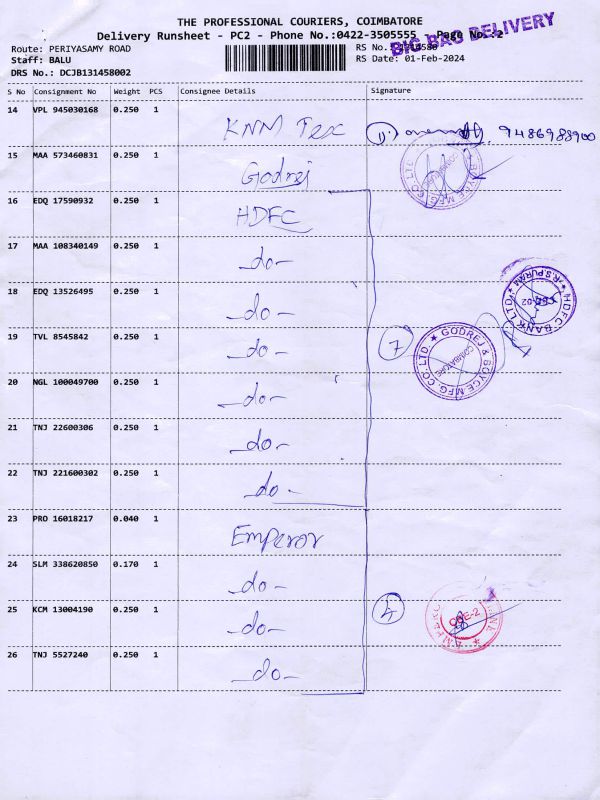 THE PROFESSIONAL COURIERS, COIMBATORE
Delivery Runsheet - PC2 - Phone No.:0422-3505555 Page No.:2
BIG BAG DELIVERY
Route: PERIYASAMY ROAD RS No.:
Staff: BALU RS Date: 01-Feb-2024
DRS No.: DCJB131458002
S No Consignment No Weight PCS Consignee Details Signature
14 VPL 945030168 0.250 1 KNM Tex 9486988900
15 MAA 573460831 0.250 1 Godrej
BOYCE MFG. CO. LTD
16 EDQ 17590932 0.250 1 HDFC
17 MAA 108340149 0.250 1 -do-
18 EDQ 13526495 0.250 1 -do-
HDFC BANK LTD. ★ R.S.PURAM ★
19 TVL 8545842 0.250 1 -do- 7
★ GODREJ & BOYCE MFG. CO. LTD. COIMBATORE
20 NGL 100049700 0.250 1 -do-
21 TNJ 22600306 0.250 1 -do-
22 TNJ 221600302 0.250 1 -do-
23 PRO 16018217 0.040 1 Emperor
24 SLM 338620850 0.170 1 -do-
25 KCM 13004190 0.250 1 -do- 4
26 TNJ 5527240 0.250 1 -do-